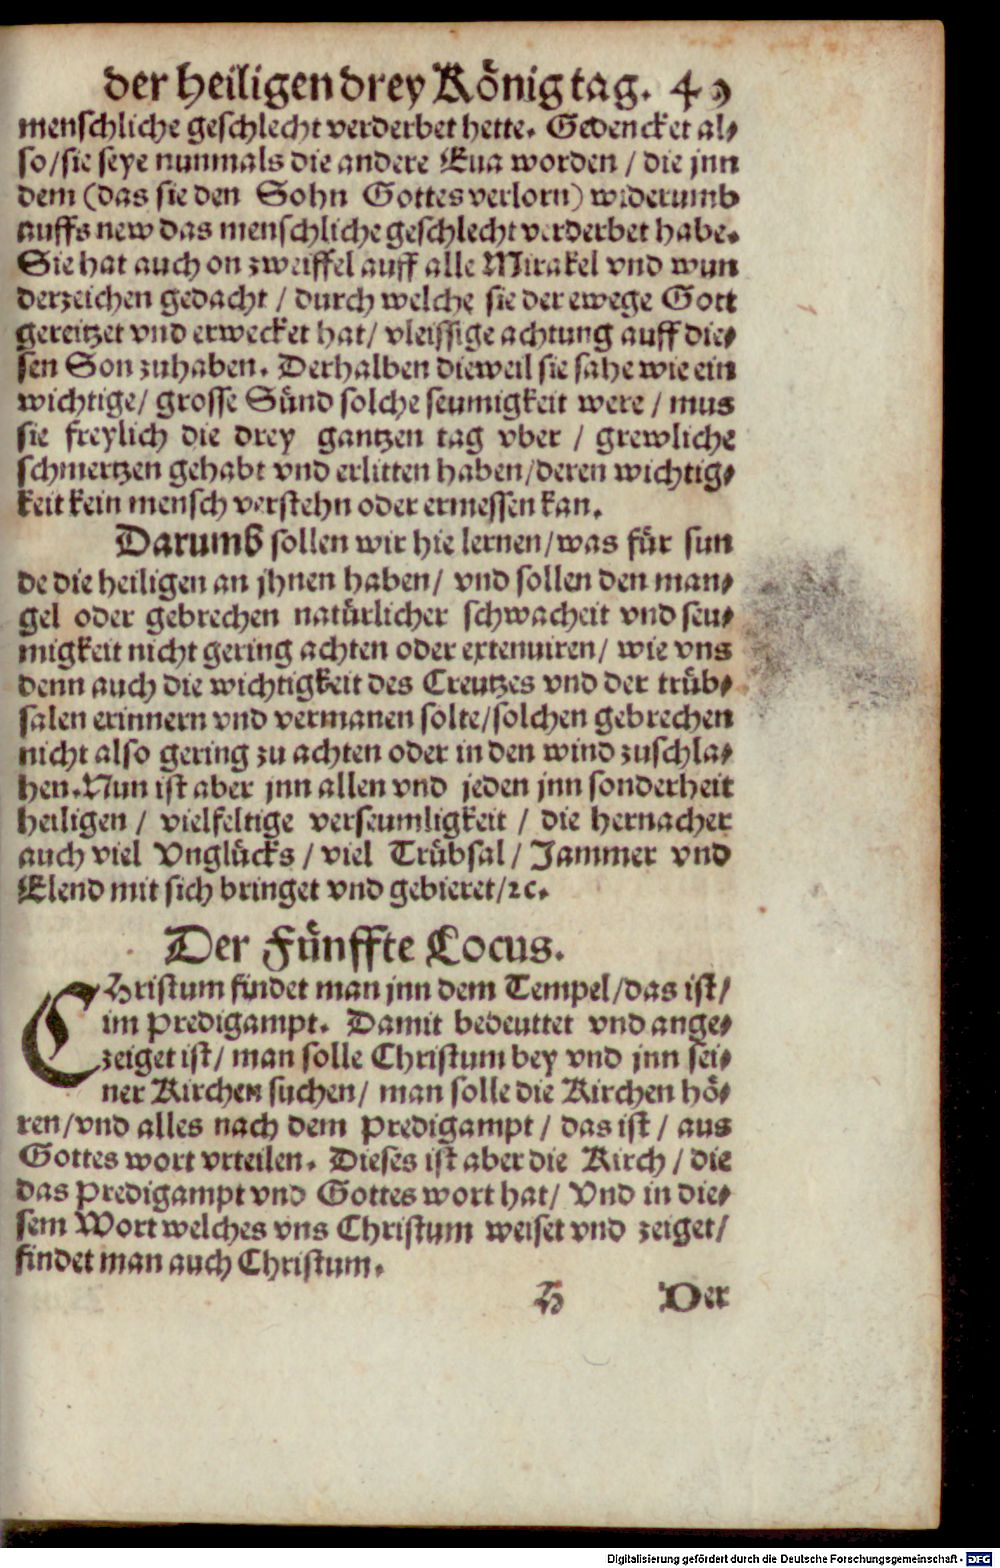 der heiligen drey Koͤnig tag. 49
menschliche geschlecht verderbet hette. Gedencket al⸗
so/sie seye nunmals die andere Eua worden / die jnn
dem (das sie den Sohn Gottes verlorn) widerumb
auffs new das menschliche geschlecht verderbet habe.
Sie hat auch on zweiffel auff alle Mirakel vnd wun
derzeichen gedacht / durch welche sie der ewege Gott
gereitzet vnd erwecket hat/ vleissige achtung auff die⸗
sen Son zuhaben. Derhalben dieweil sie sahe wie ein
wichtige/ grosse Suͤnd solche seumigkeit were / mus
sie freylich die drey gantzen tag vber / grewliche
schmertzen gehabt vnd erlitten haben/deren wichtig⸗
keit kein mensch verstehn oder ermessen kan.
Darumb sollen wir hie lernen/was fuͤr sun
de die heiligen an jhnen haben/ vnd sollen den man⸗
gel oder gebrechen natuͤrlicher schwacheit vnd seu⸗
migkeit nicht gering achten oder extenuiren/ wie vns
denn auch die wichtigkeit des Creutzes vnd der truͤb⸗
salen erinnern vnd vermanen solte/solchen gebrechen
nicht also gering zu achten oder in den wind zuschla⸗
hen. Nun ist aber jnn allen vnd jeden jnn sonderheit
heiligen / vielfeltige verseumligkeit / die hernacher
auch viel Vngluͤcks / viel Truͤbsal / Jammer vnd
Elend mit sich bringet vnd gebieret/ꝛc.
Der Fuͤnffte Locus.
CHristum findet man jnn dem Tempel/das ist/
im Predigampt. Damit bedeuttet vnd ange⸗
zeiget ist/ man solle Christum bey vnd jnn sei⸗
ner Kirchen suchen/ man solle die Kirchen hoͤ⸗
ren/vnd alles nach dem Predigampt / das ist / aus
Gottes wort vrteilen. Dieses ist aber die Kirch / die
das Predigampt vnd Gottes wort hat/ Vnd in die⸗
sem Wort welches vns Christum weiset vnd zeiget/
findet man auch Christum.
H Der
Digitalisierung gefördert durch die Deutsche Forschungsgemeinschaft - DFG